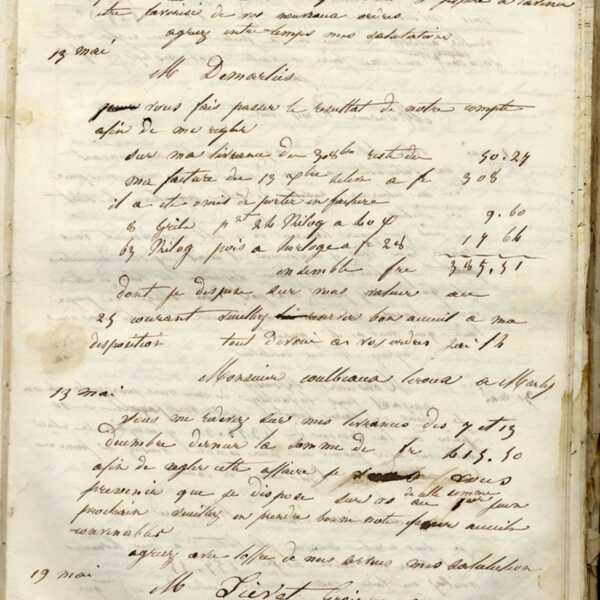 être favorisé de vos nouveaux ordres
agréez entre temps mes salutations
13 mai
M Demarliés
vous fais passer le resultat de notre compte
afin de me regler
sur ma livrance du 30 8bre reste du 50.27
ma facture du 13 xbre delivré a fr 308
il a eté omis de porter en facture
8 Grils pnt 24 Kilog a 40 9.60
63 Kilog pois a horloge a fr 28 17 64
ensemble fre 385,51
dont je dispose sur vous valeur au
25 courant veuillez reserver bon accueil a ma
disposition tout devoué a vos ordres
Monsieur coulbeaux a Marly
13 mai
vous me redevez sur mes livrances des 7 et 13
decembre dernier la somme de fr 613.50
afin de regler cette affaire je vous
previens que je dispose sur vs de cette somme au juin
prochain veuillez en prendre bonne note accueil
convenable
agréez avec l'offre de mes services mes salutation
19 mai
M